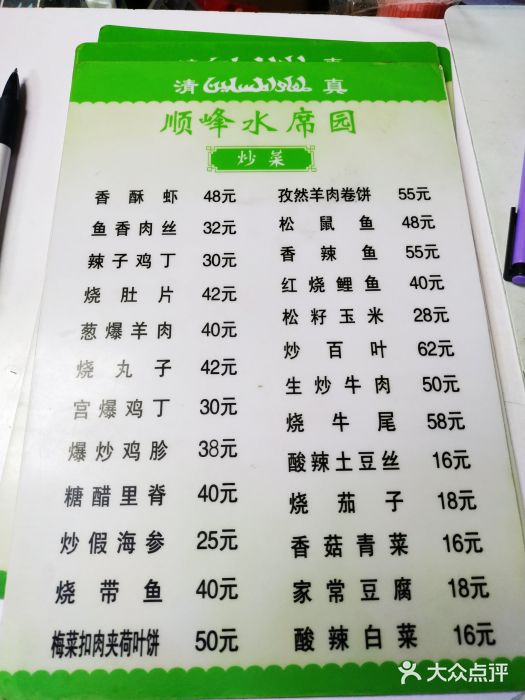 清 真
顺峰水席园
炒菜
香酥虾 48元
鱼香肉丝 32元
辣子鸡丁 30元
烧肚片 42元
葱爆羊肉 40元
烧丸子 42元
宫爆鸡丁 30元
爆炒鸡胗 38元
糖醋里脊 40元
炒假海参 25元
烧带鱼 40元
梅菜扣肉夹荷叶饼 50元
孜然羊肉卷饼 55元
松鼠鱼 48元
香辣鱼 55元
红烧鲤鱼 40元
松籽玉米 28元
炒百叶 62元
生炒牛肉 50元
烧牛尾 58元
酸辣土豆丝 16元
烧茄子 18元
香菇青菜 16元
家常豆腐 18元
酸辣白菜 16元
大众点评